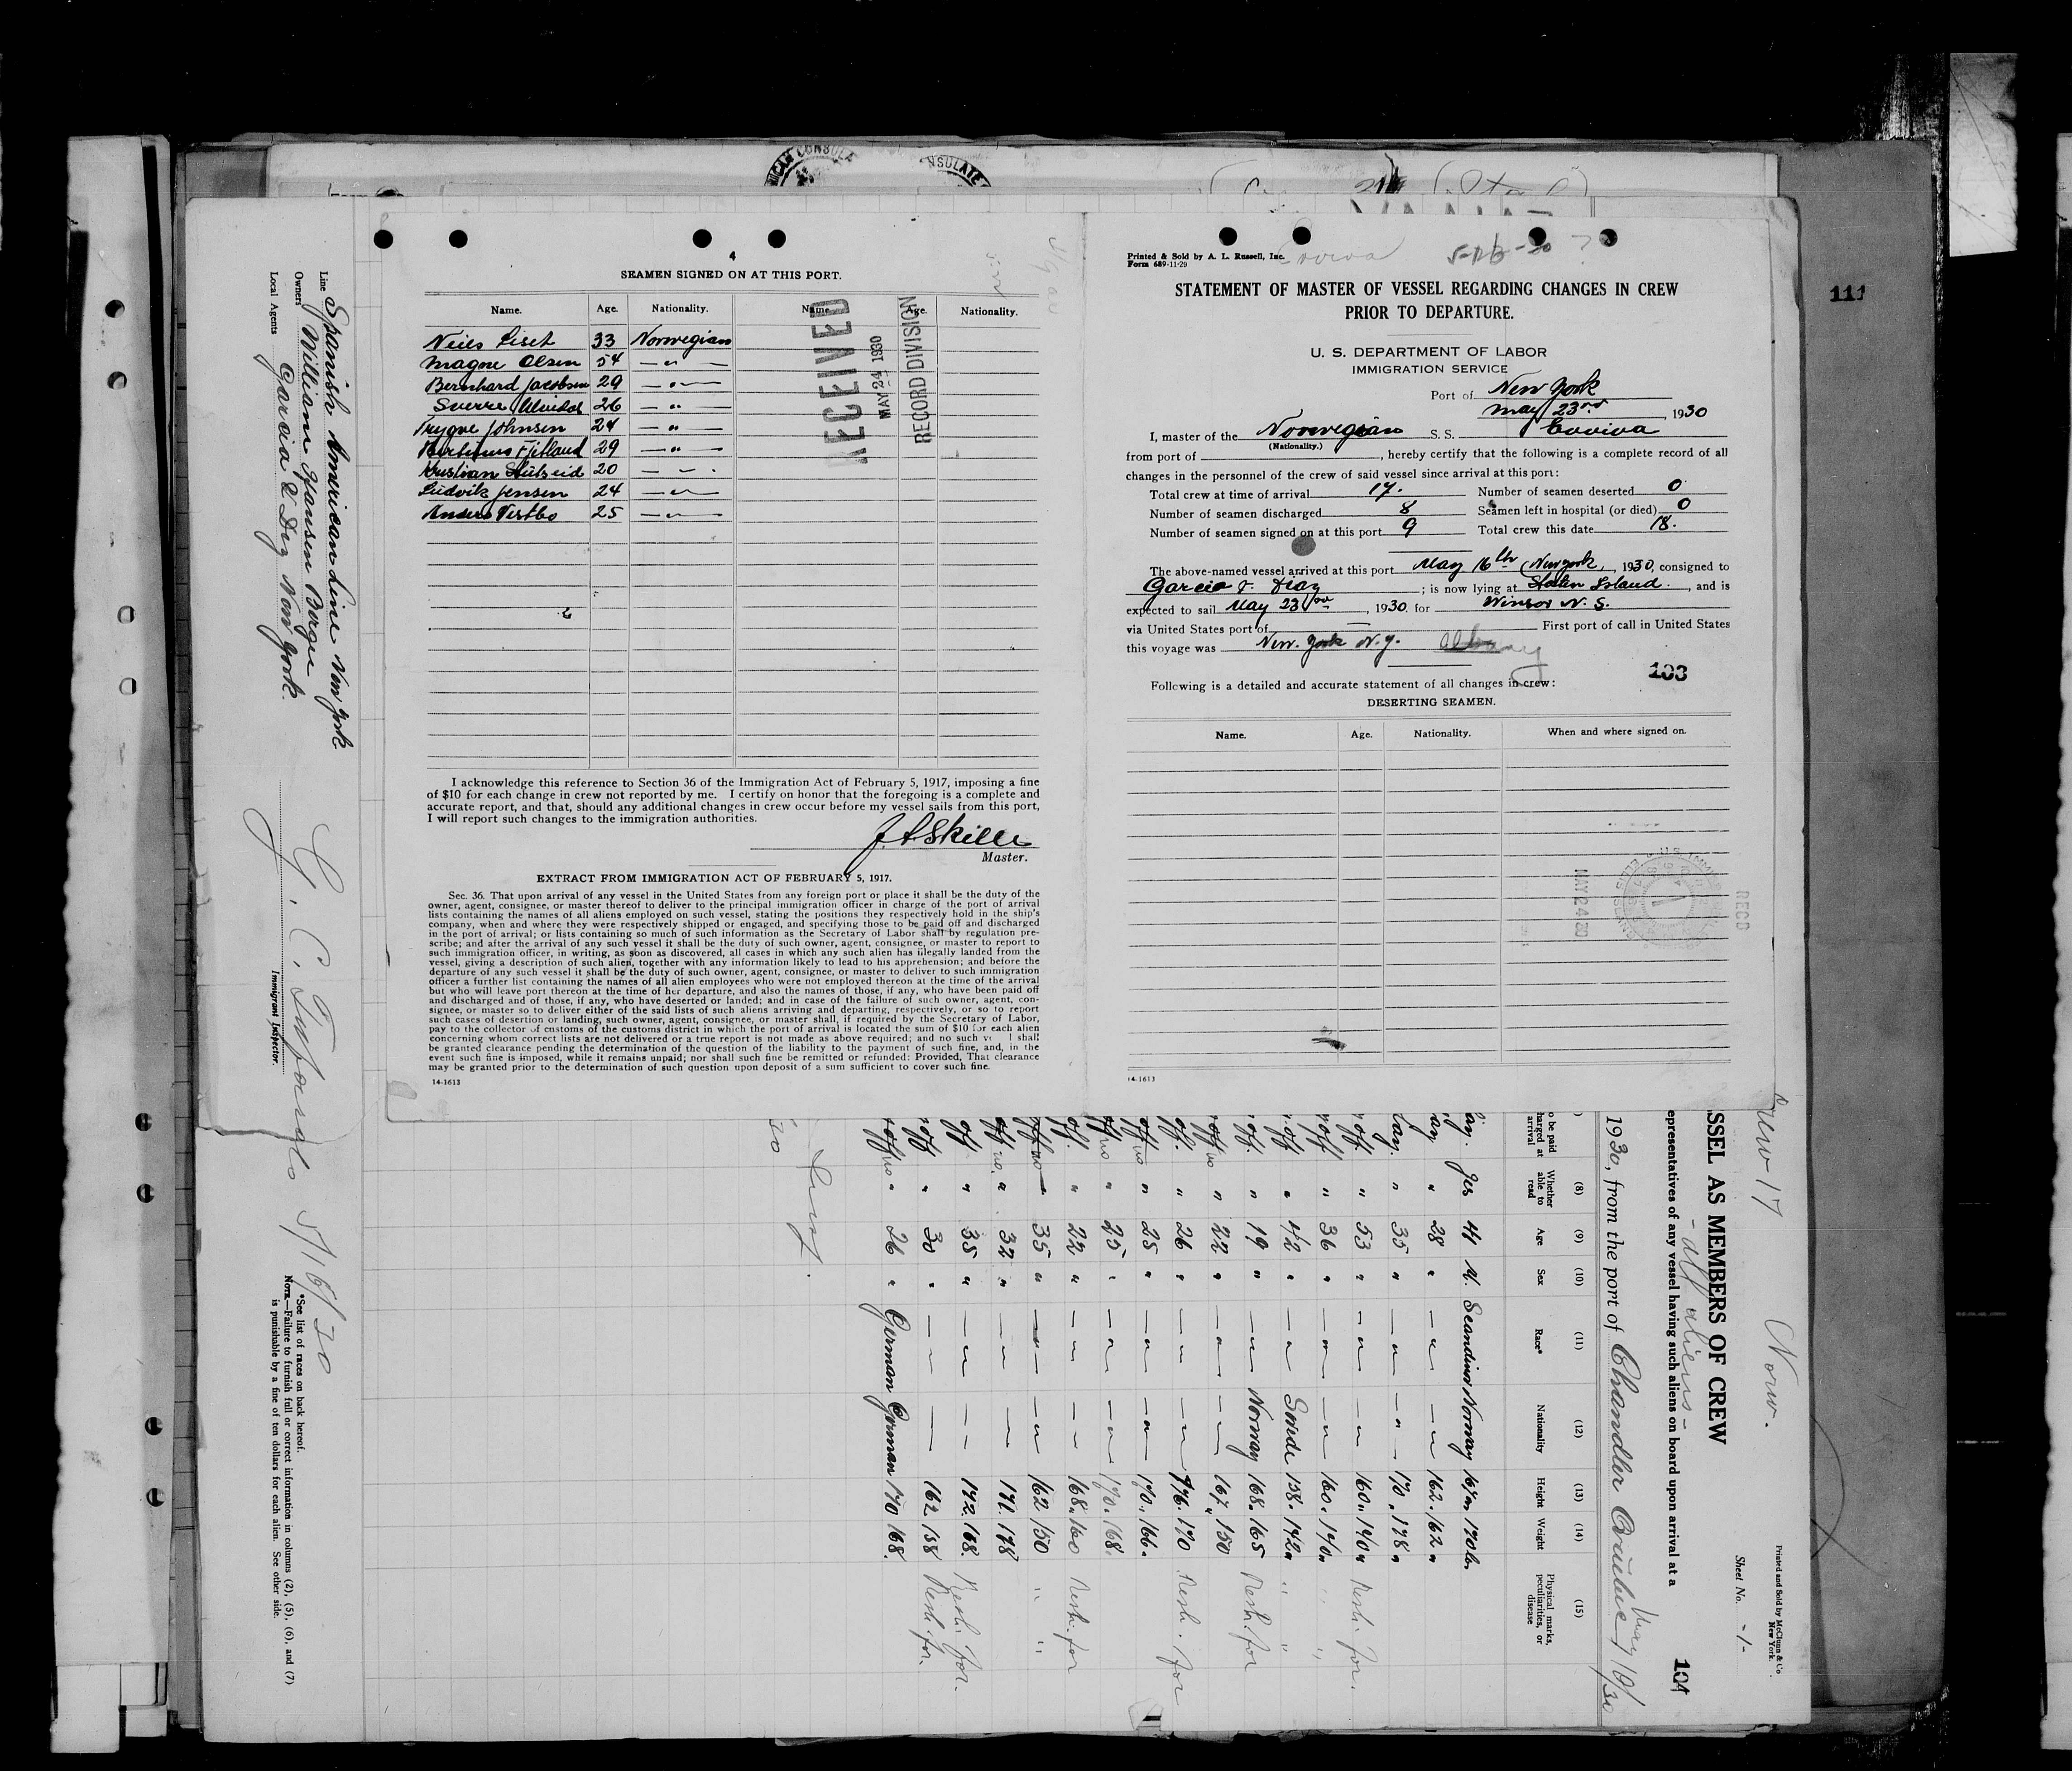 4
SEAMEN SIGNED ON AT THIS PORT.
Name. Age. Nationality. Name. Age. Nationality.
33 Norwegian
Magne Olsen 54 — " —
Bernhard Jacobsen 29 — " —
Sverre 26 — " —
Trygve Johnsen 24 — " —
Fjetland 29 — " —
Kristian 20 — " —
Ludvik Jensen 24 — " —
Anders Vestbo 25 — " —
RECEIVED
MAY 24 1930
RECORD DIVISION
I acknowledge this reference to Section 36 of the Immigration Act of February 5, 1917, imposing a fine
of $10 for each change in crew not reported by me. I certify on honor that the foregoing is a complete and
accurate report, and that, should any additional changes in crew occur before my vessel sails from this port,
I will report such changes to the immigration authorities.
Master.
EXTRACT FROM IMMIGRATION ACT OF FEBRUARY 5, 1917.
Sec. 36. That upon arrival of any vessel in the United States from any foreign port or place it shall be the duty of the
owner, agent, consignee, or master thereof to deliver to the principal immigration officer in charge of the port of arrival
lists containing the names of all aliens employed on such vessel, stating the positions they respectively hold in the ship's
company, when and where they were respectively shipped or engaged, and specifying those to be paid off and discharged
in the port of arrival; or lists containing so much of such information as the Secretary of Labor shall by regulation pre-
scribe; and after the arrival of any such vessel it shall be the duty of such owner, agent, consignee, or master to report to
such immigration officer, in writing, as soon as discovered, all cases in which any such alien has illegally landed from the
vessel, giving a description of such alien, together with any information likely to lead to his apprehension; and before the
departure of any such vessel it shall be the duty of such owner, agent, consignee, or master to deliver to such immigration
officer a further list containing the names of all alien employees who were not employed thereon at the time of the arrival
but who will leave port thereon at the time of her departure, and also the names of those, if any, who have been paid off
and discharged and of those, if any, who have deserted or landed; and in case of the failure of such owner, agent, con-
signee, or master so to deliver either of the said lists of such aliens arriving and departing, respectively, or so to report
such cases of desertion or landing, such owner, agent, consignee, or master shall, if required by the Secretary of Labor,
pay to the collector of customs of the customs district in which the port of arrival is located the sum of $10 for each alien
concerning whom correct lists are not delivered or a true report is not made as above required; and no such ve l shall
be granted clearance pending the determination of the question of the liability to the payment of such fine, and, in the
event such fine is imposed, while it remains unpaid; nor shall such fine be remitted or refunded: Provided, That clearance
may be granted prior to the determination of such question upon deposit of a sum sufficient to cover such fine.
14-1613
Printed & Sold by A. L. Russell, Inc.
Form 689-11-29
STATEMENT OF MASTER OF VESSEL REGARDING CHANGES IN CREW
PRIOR TO DEPARTURE.
U. S. DEPARTMENT OF LABOR
IMMIGRATION SERVICE
Port of New York
May 23rd, 1930
I, master of the Norwegian S. S. Evviva
(Nationality.)
from port of , hereby certify that the following is a complete record of all
changes in the personnel of the crew of said vessel since arrival at this port:
Total crew at time of arrival 17. Number of seamen deserted 0
Number of seamen discharged 8 Seamen left in hospital (or died) 0
Number of seamen signed on at this port 9 Total crew this date 18.
The above-named vessel arrived at this port May 16th (New york, 1930, consigned to
Garcia & Diaz ; is now lying at Staten Island. , and is
expected to sail May 23rd , 1930 for Winsor N. S.
via United States port of — First port of call in United States
this voyage was New. York N.Y. Albany
103
Following is a detailed and accurate statement of all changes in crew:
DESERTING SEAMEN.
Name. Age. Nationality. When and where signed on.
MAY 24 30
RECD
14-1613
111
Line Spanish American Line New York
Owners William Hansen Bergen
Local Agents Garcia & Diaz New York.
Immigrant Inspector.
5/16/30
*See list of races on back hereof.
NOTE.—Failure to furnish full or correct information in columns (2), (5), (6), and (7)
is punishable by a fine of ten dollars for each alien. See other side.
Printed and Sold by McClunn & Co
New York.
Sheet No. -1-
Crew 17 Norw.
SSEL AS MEMBERS OF CREW
- all aliens -
epresentatives of any vessel having such aliens on board upon arrival at a
104
1930, from the port of Chandler Quebec May 10/30
(8) (9) (10) (11) (12) (13) (14) (15)
o be paid
harged at
arrival
Whether able to read Age Sex Race* Nationality Height Weight Physical marks, peculiarities, or disease
Yes 41 M. Scandinav Norway 167m 170 lb.
" 28 " — " — — " — 162 . 162 "
" 35 " — " — — " — 170 . 178 "
" 53 " — " — — " — 160 . 140 "
" 36 " — " — — " — 160 . 140 "
" 42 " — " — Swede 158 . 142 "
" 19 " — " — Norway 168 . 165
" 22 " — " — — " — 167 " 150
" 26 " — " — — " — 176 . 170
" 25 " — " — — " — 170 . 166 "
" 25 " — " — — " — 170 . 168.
" 22 " — " — — " — 168 . 160
" 35 " — " — — " — 162 150
" 32 " — " — — " — 171 . 178
" 35 " — " — — " — 172 . 168.
" 30 " — " — — " — 162 158
" 26 " German German 170 168.